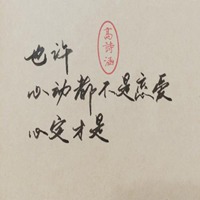 也许
心动都不是恋爱
心定才是
高诗涵